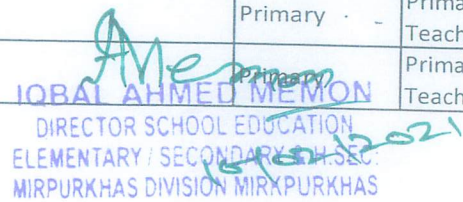 Primary
Prima
Teach
Primary
Prima
Teach
AMemon
IQBAL AHMED MEMON
DIRECTOR SCHOOL EDUCATION
ELEMENTARY / SECONDARY & H. SEC:
MIRPURKHAS DIVISION MIRKPURKHAS